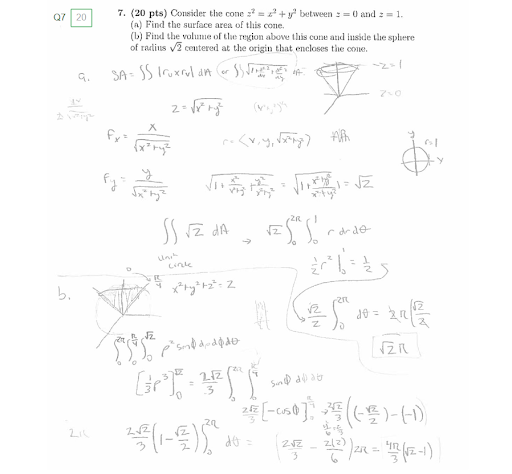 Q7 20
7. (20 pts) Consider the cone z² = x² + y² between z = 0 and z = 1.
(a) Find the surface area of this cone.
(b) Find the volume of the region above this cone and inside the sphere
of radius √2 centered at the origin that encloses the cone.
a. SA = ∬ |r_u × r_v| dA
z = 1
z = 0
z = √(x² + y²)
f_x = x / √(x² + y²)
r = <x, y, √(x² + y²)>
y r=1
x
f_y = y / √(x² + y²)
√(1 + x²/(x² + y²) + y²/(x² + y²)) = √(1 + (x² + y²)/(x² + y²)) = √2
∬ √2 dA → √2 ∫₀^2π ∫₀^1 r dr dθ
unit
circle
½ r² |₀^1 = ½
b. π/4 x² + y² + z² = 2
√2/2 ∫₀^2π dθ = 2π (√2/2)
√2 π
∫₀^2π ∫₀^π/4 ∫₀^√2 ρ² sinφ dρ dφ dθ
[⅓ ρ³]₀^√2 = 2√2/3 ∫₀^2π ∫₀^π/4 sinφ dφ dθ
2√2/3 [-cosφ]₀^π/4 → 2√2/3 ((-√2/2) - (-1))
2√2/3 (1 - √2/2) ∫₀^2π dθ = (2√2/3 - 2(2)/6) 2π = 4π/3 (√2 - 1)